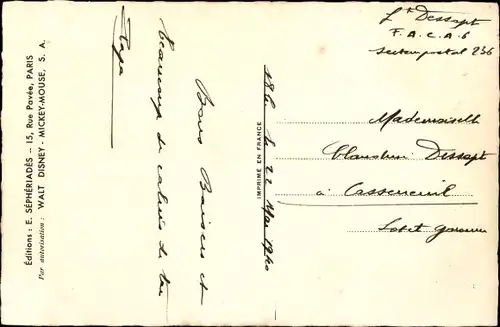 Éditions : E. SÉPHÉRIADÈS - 15, Rue Pavée, PARIS
Par autorisation : WALT DISNEY - MICKEY-MOUSE, S. A.
Bons Baisers et
beaucoup de calins de ton
Papa
IMPRIMÉ EN FRANCE
le 22 Mai 1940
Lt Dessapt
F.A.C.A.6
Secteur postal 236
Mademoiselle
Dessapt
à Casseneuil
Lot et Garonne